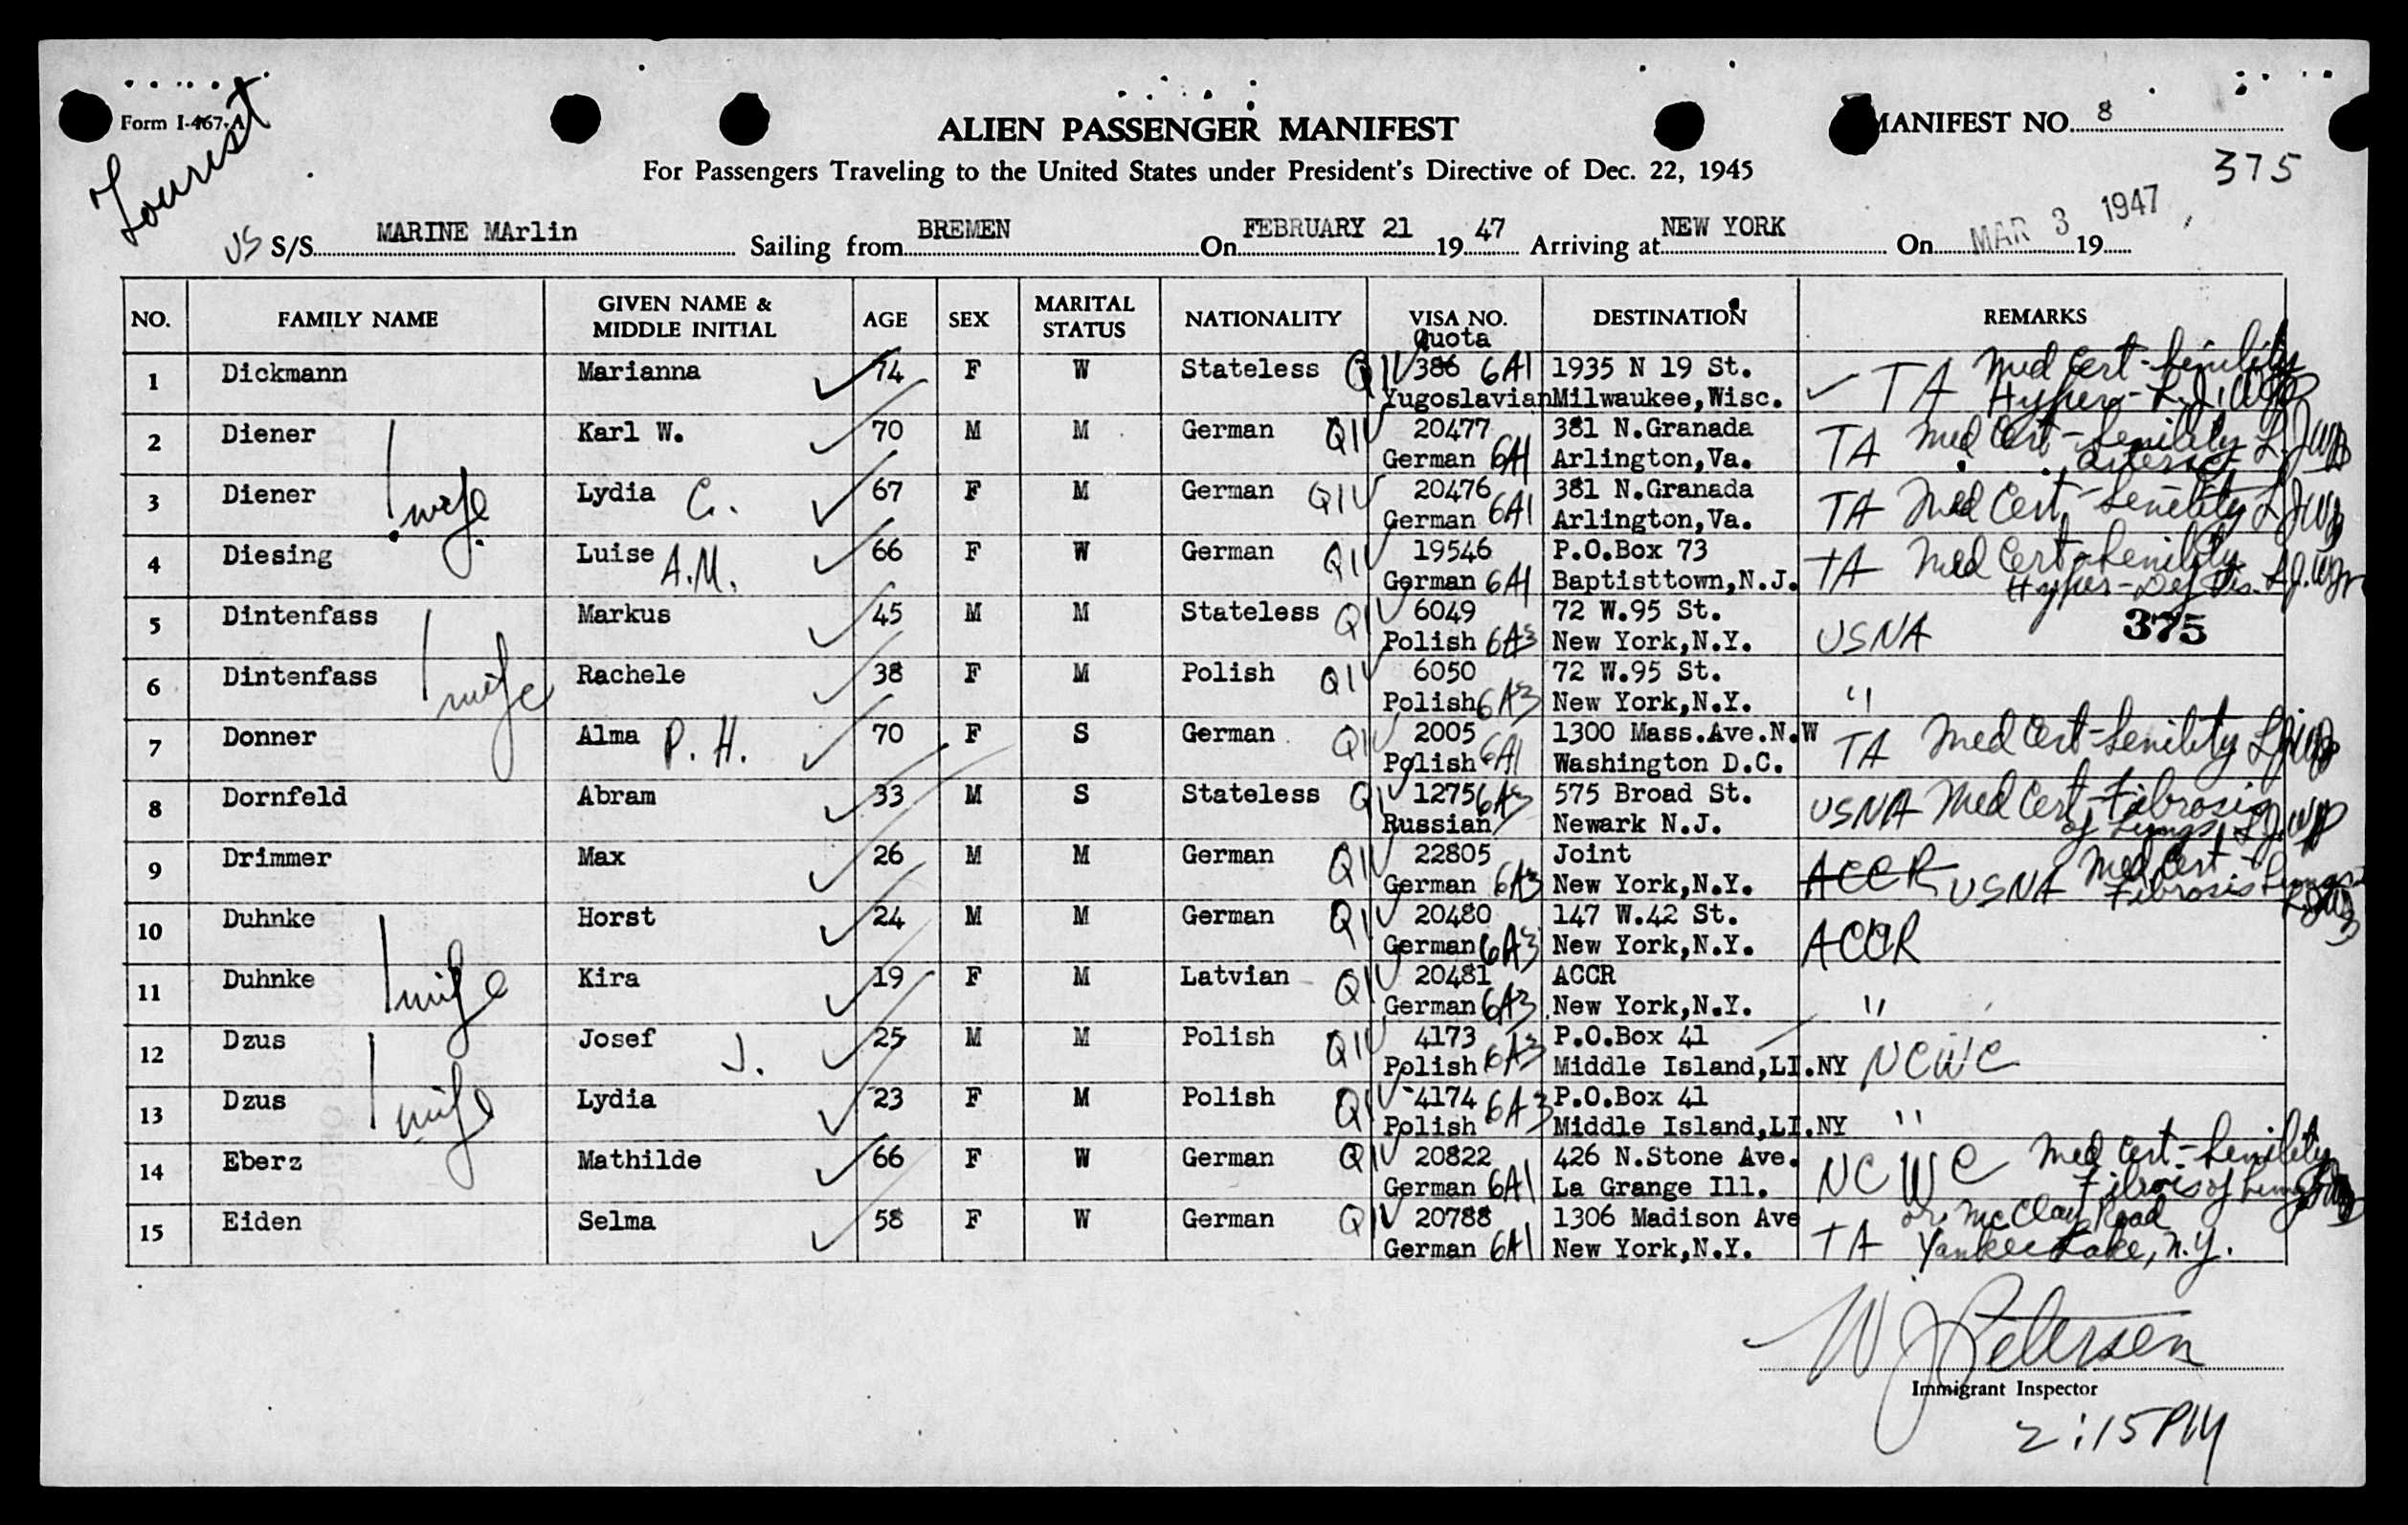 Form I-467-A
Tourist
ALIEN PASSENGER MANIFEST
MANIFEST NO. 8
For Passengers Traveling to the United States under President's Directive of Dec. 22, 1945
375
US S/S MARINE MArlin Sailing from BREMEN On FEBRUARY 21 19 47 Arriving at NEW YORK On MAR 3 1947 19
NO. FAMILY NAME GIVEN NAME & MIDDLE INITIAL AGE SEX MARITAL STATUS NATIONALITY VISA NO. Quota DESTINATION REMARKS
1 Dickmann Marianna 74 F W Stateless QIV 386 6A1 1935 N 19 St. TA Med Cert-Senility
Yugoslavian Milwaukee,Wisc. Hyper-
2 Diener Karl W. 70 M M German QIV 20477 381 N.Granada TA Med Cert-Senility
German 6A1 Arlington,Va.
3 Diener wife Lydia C. 67 F M German QIV 20476 381 N.Granada TA Med Cert-Senility
German 6A1 Arlington,Va.
4 Diesing Luise A.M. 66 F W German QIV 19546 P.O.Box 73 TA Med Cert-Senility
German 6A1 Baptisttown,N.J. Hyper-
5 Dintenfass Markus 45 M M Stateless QIV 6049 72 W.95 St. USNA 375
Polish 6A3 New York,N.Y.
6 Dintenfass wife Rachele 38 F M Polish QIV 6050 72 W.95 St. "
Polish 6A3 New York,N.Y.
7 Donner Alma P.H. 70 F S German QIV 2005 1300 Mass.Ave.N.W TA Med Cert-Senility
Polish 6A1 Washington D.C.
8 Dornfeld Abram 33 M S Stateless QIV 1275 6A3 575 Broad St. USNA Med Cert-Fibrosis
Russian Newark N.J. of Lungs
9 Drimmer Max 26 M M German QIV 22805 Joint ACCR USNA Med Cert-
German 6A3 New York,N.Y. Fibrosis Lungs
10 Duhnke Horst 24 M M German QIV 20480 147 W.42 St. ACCR
German 6A3 New York,N.Y.
11 Duhnke wife Kira 19 F M Latvian QIV 20481 ACCR "
German 6A3 New York,N.Y.
12 Dzus Josef J. 25 M M Polish QIV 4173 P.O.Box 41 NCWC
Polish 6A3 Middle Island,LI.NY
13 Dzus wife Lydia 23 F M Polish QIV 4174 6A3 P.O.Box 41 "
Polish Middle Island,LI.NY
14 Eberz Mathilde 66 F W German QIV 20822 426 N.Stone Ave. NCWC Med Cert-Senility
German 6A1 La Grange Ill.
15 Eiden Selma 58 F W German QIV 20788 1306 Madison Ave or McClay Road
German 6A1 New York,N.Y. TA Yankee Lake, N.Y.
W J Petersen
Immigrant Inspector
2:15PM